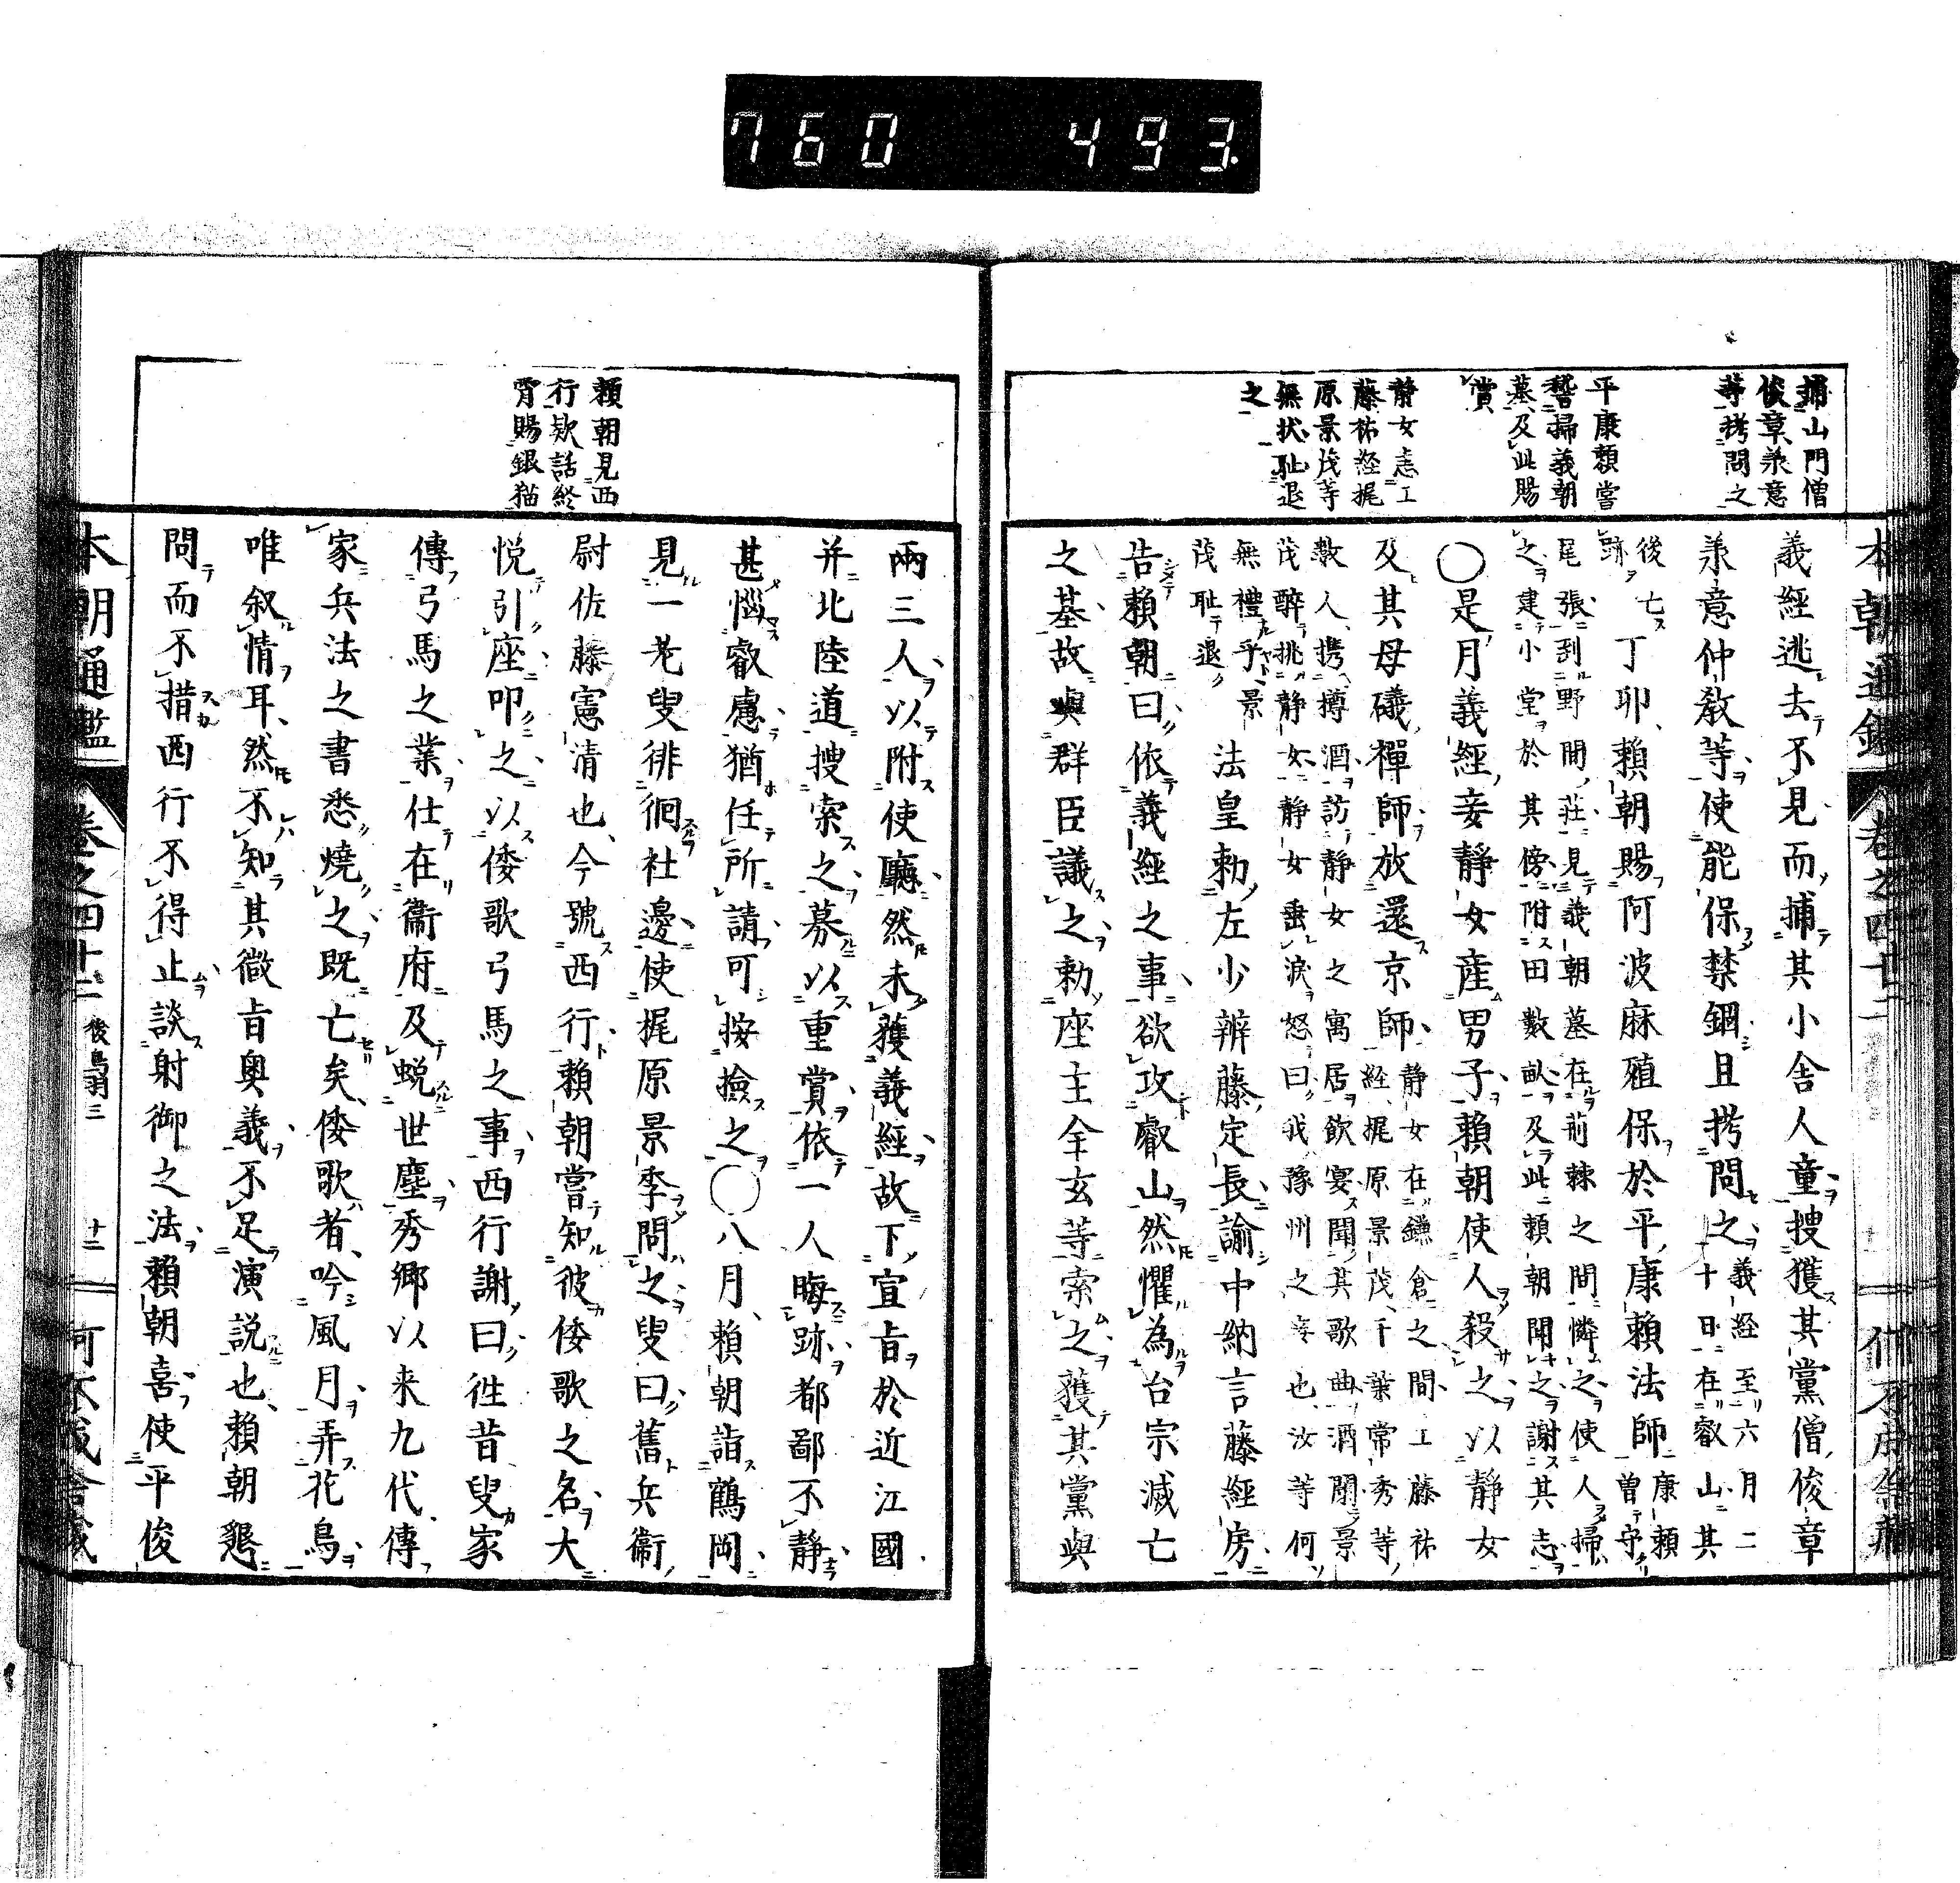 760 493
本朝通鑑 卷之四十二
捕山門僧
俊章承意
等拷問之
平康頼嘗
誓掃義朝
墓及此賜
賞
静女恚工
藤祐経梶
原景茂等
無状耻退
之
義經逃去不見而捕其小舎人童搜獲其黨僧俊章
承意仲教等使能保禁錮且拷問之義経至六月二
十日在叡山其
後亡
跡
丁卯頼朝賜阿波麻殖保於平康頼法師康頼
曽守
尾張到野間莊見義朝墓在荊棘之間憐之使人掃
之建小堂於其傍附田數畝及此頼朝聞之謝其志
〇是月義經妾静女産男子頼朝使人殺之以静女
及其母礒禪師放還京師静女在鎌倉之間工藤祐
経梶原景茂千葉常秀等
數人携樽酒訪静女之寓居飲宴聞其歌曲酒闌景
茂醉挑静女静女垂涙怒曰我豫州之妾也汝等何
無禮乎景
茂耻退
法皇勅左少辨藤定長諭中納言藤經房
告頼朝曰依義經之事欲攻叡山然懼為台宗滅亡
之基故與群臣議之勅座主全玄等索之獲其黨與
兩三人以附使廳然未獲義經故下宣旨於近江國
并北陸道搜索之募以重賞依一人晦跡都鄙不静
甚惱叡慮猶任所請可按撿之〇八月頼朝詣鶴岡
見一老叟徘徊社邊使梶原景季問之叟曰舊兵衞
尉佐藤憲清也今號西行頼朝嘗知彼倭歌之名大
悦引座叩之以倭歌弓馬之事西行謝曰徃昔叟家
傳弓馬之業仕在衞府及蛻世塵秀郷以来九代傳
家兵法之書悉燒之既亡矣倭歌者吟風月弄花鳥
唯叙情耳然不知其微旨奥義不足演説也頼朝懇
問而不措西行不得止談射御之法頼朝喜使平俊
頼朝見西
行欵話終
宵賜銀猫
本朝通鑑 卷之四十二 後鳥羽三 十二